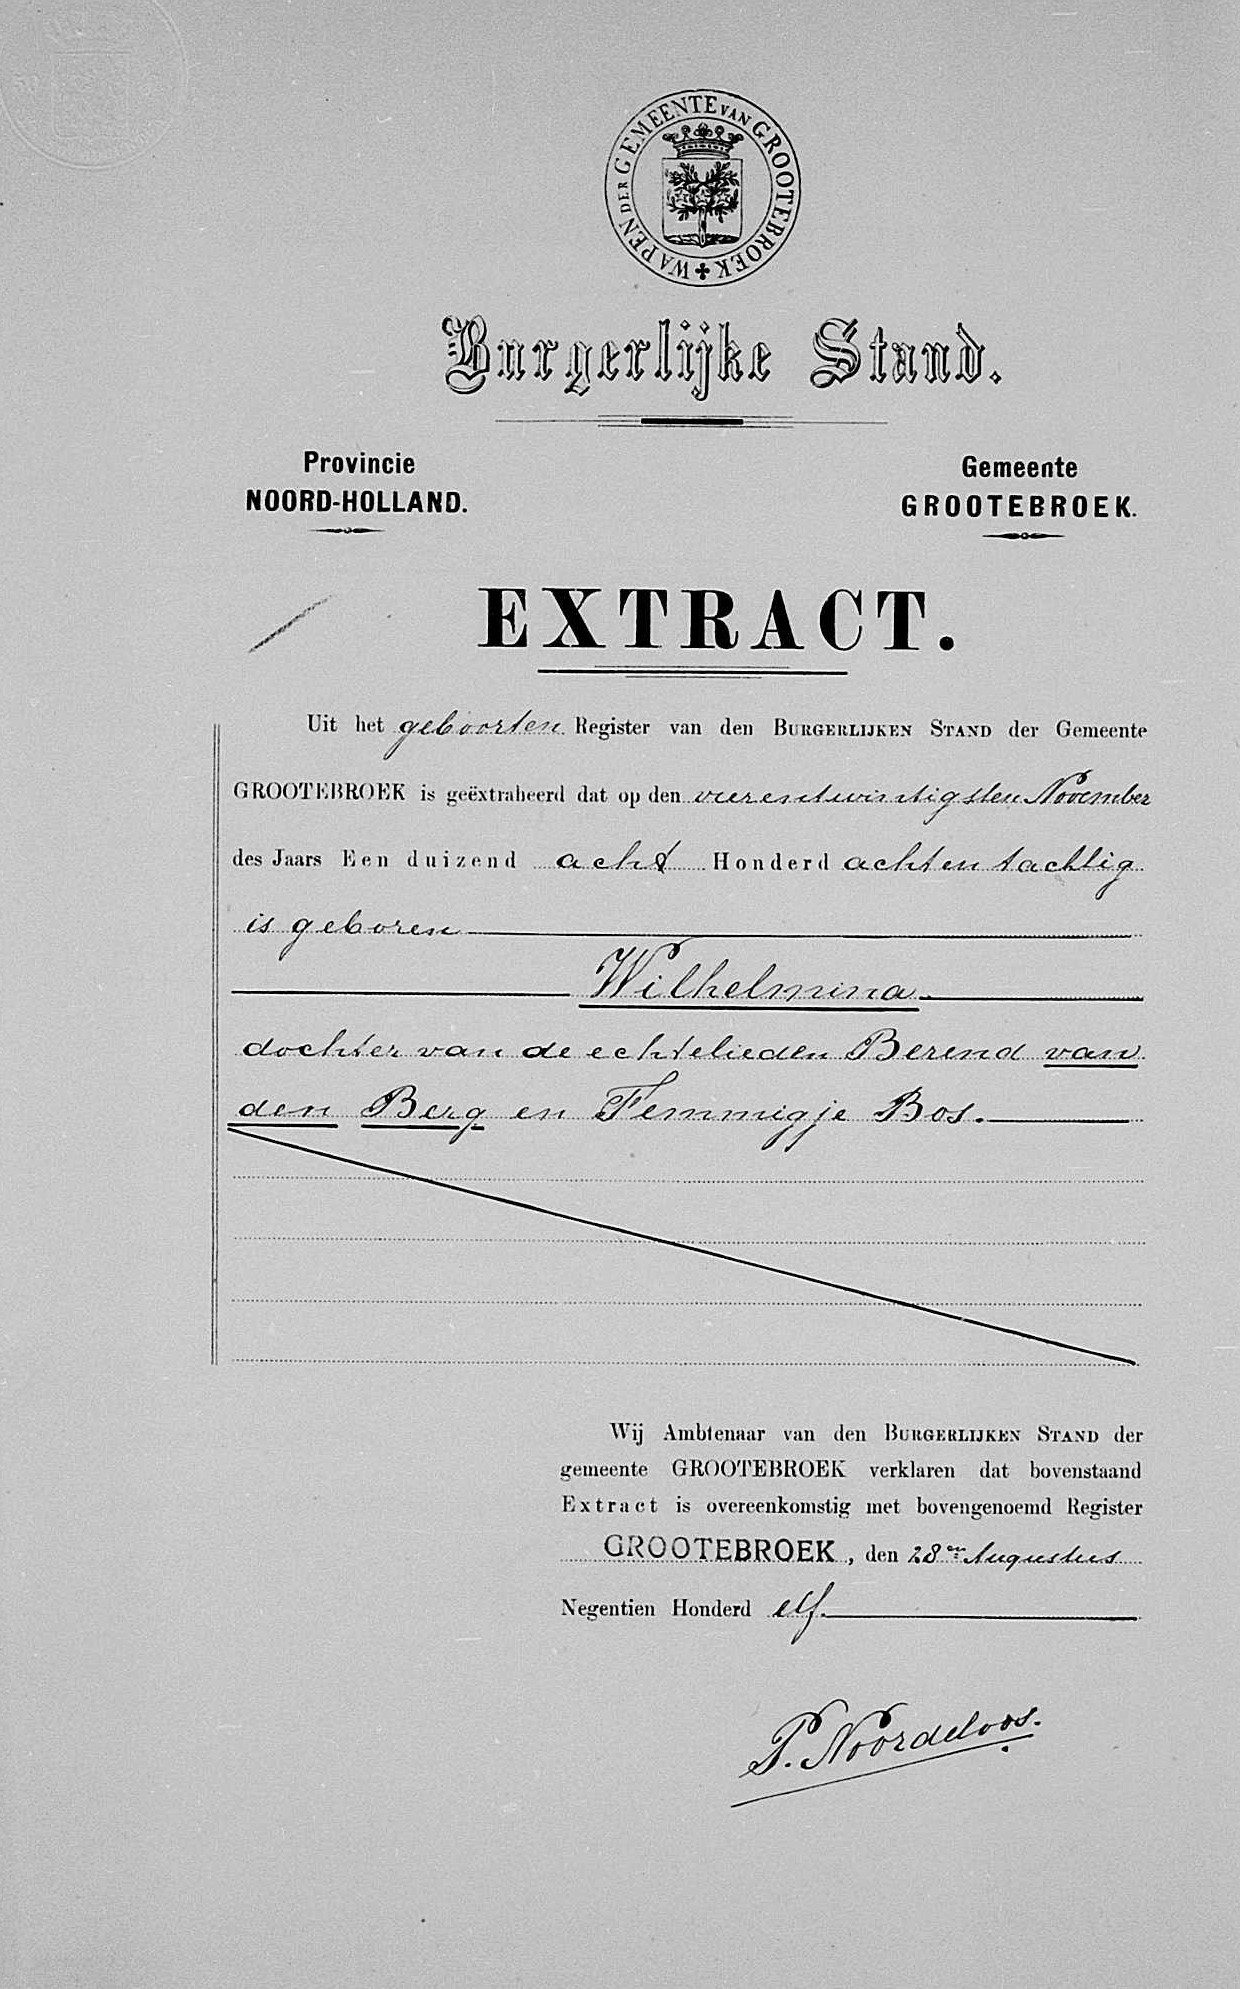 WAPEN DER GEMEENTE VAN GROOTEBROEK
Burgerlijke Stand.
Provincie
NOORD-HOLLAND.
Gemeente
GROOTEBROEK.
EXTRACT.
Uit het geboorten Register van den BURGERLIJKEN STAND der Gemeente
GROOTEBROEK is geëxtraheerd dat op den vierentwintigsten November
des Jaars Een duizend acht Honderd achtentachtig
is geboren
Wilhelmina
dochter van de echtelieden Berend van
den Berg en Femmigje Bos.
Wij Ambtenaar van den BURGERLIJKEN STAND der
gemeente GROOTEBROEK verklaren dat bovenstaand
Extract is overeenkomstig met bovengenoemd Register
GROOTEBROEK, den 28en Augustus
Negentien Honderd elf.
P. Noordeloos.